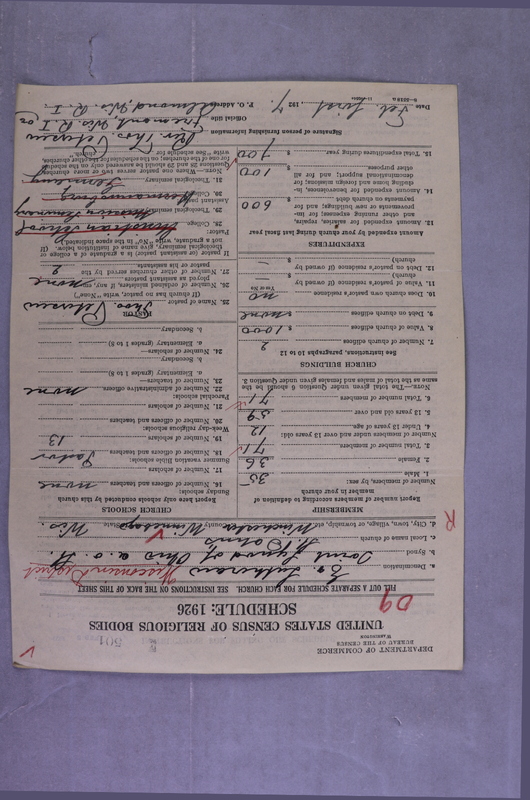 DEPARTMENT OF COMMERCE
BUREAU OF THE CENSUS
WASHINGTON
501
UNITED STATES CENSUS OF RELIGIOUS BODIES
SCHEDULE: 1926
D9
FILL OUT A SEPARATE SCHEDULE FOR EACH CHURCH. SEE INSTRUCTIONS ON THE BACK OF THIS SHEET
a. Denomination Ev. Lutheran Wisconsin District
b. Synod Joint Synod of Ohio a. o. S.
c. Local name of church St Johns
d. City, town, village, or township, etc. Winchester County Winnebago State Wis.
R
MEMBERSHIP
Report number of members according to definition of member in your church
Number of members, by sex:
1. Male 35
2. Female 36
3. Total number of members 71
Number of members under and over 13 years old:
4. Under 13 years of age 12
5. 13 years old and over 59
6. Total number of members 71
NOTE.—The total given under Question 6 should be the same as the total of males and females given under Question 3.
CHURCH BUILDINGS
See Instruction, paragraphs 10 to 12
7. Number of church edifices 2
8. Value of church edifices $ 1000
9. Debt on church edifices $ none
10. Does church own pastor's residence no
Yes or No
11. Value of pastor's residence (if owned by church) $ —
12. Debt on pastor's residence (if owned by church) $ —
EXPENDITURES
Amount expended by your church during last fiscal year
13. Amount expended for salaries, repairs, and other running expenses; for improvements or new buildings; and for payments on church debt $ 600
14. Amount expended for benevolences, including home and foreign missions; for denominational support; and for all other purposes $ 100
15. Total expenditures during year $ 700
CHURCH SCHOOLS
Report here only schools conducted by this church
Sunday schools:
16. Number of officers and teachers none
17. Number of scholars
Summer vacation Bible schools:
18. Number of officers and teachers Pastor
19. Number of scholars 13
Week-day religious schools:
20. Number of officers and teachers
21. Number of scholars
Parochial schools:
22. Number of administrative officers none
23. Number of teachers—
a. Elementary (grades 1 to 8)
b. Secondary
24. Number of scholars—
a. Elementary (grades 1 to 8)
b. Secondary
PASTOR
25. Name of pastor Thos. Petersen
(If church has no pastor, write "None")
26. Number of ordained ministers, if any, employed as assistant pastors none
27. Number of other churches served by the pastor or his assistants 2
If pastor (or assistant pastor) is a graduate of a college or theological seminary, give name of institution below. (If not a graduate, write "Not" in the space indicated.)
Pastor:
28. College
29. Theological seminary
Assistant pastor:
30. College
31. Theological seminary
Signature of person furnishing information Rev Thos. Petersen
Official title
P. O. Address Fremont, Wis. R. I or
Larsen
Date Feb. first 1927